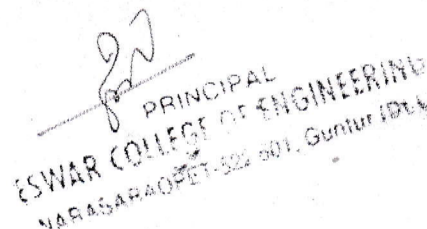 PRINCIPAL
ESWAR COLLEGE OF ENGINEERING
NARASARAOPET-522 601, Guntur (Dt.)